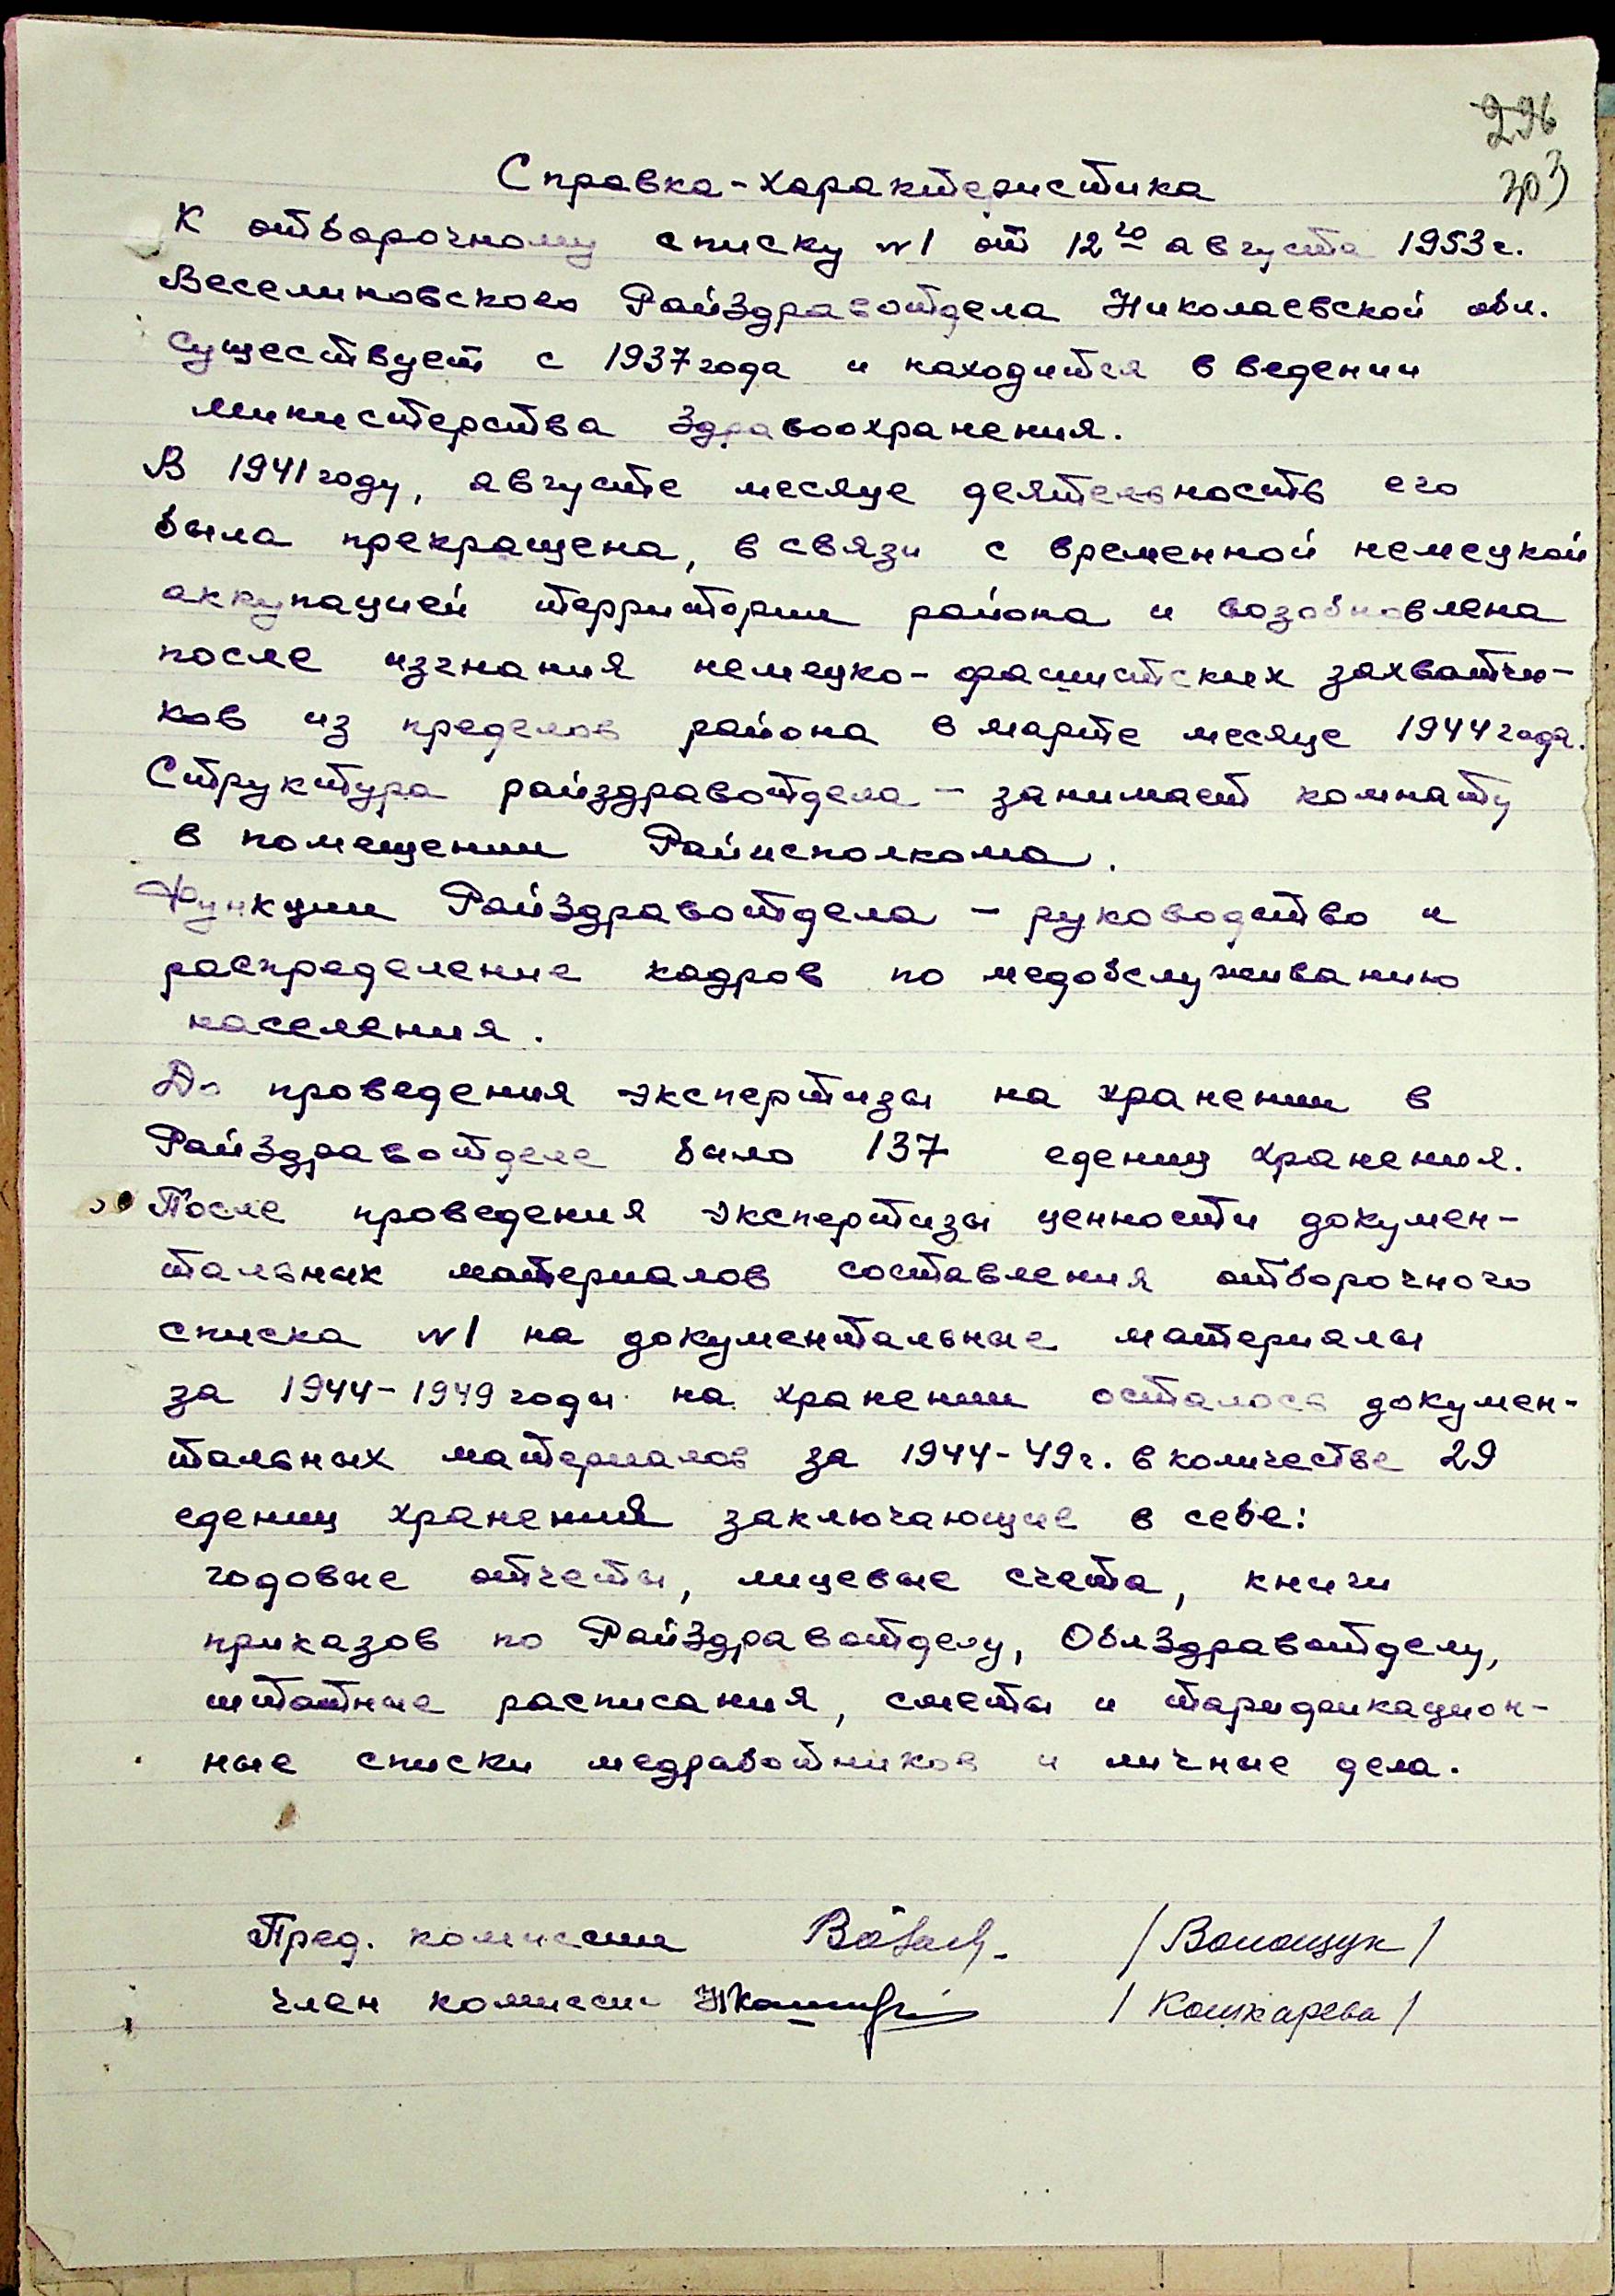 296
303
Справка-характеристика
К отборочному списку №1 от 12го августа 1953г.
Веселиновского Райздравотдела Николаевской обл.
Существует с 1937 года и находится в ведении
министерства Здравоохранения.
В 1941 году, августе месяце деятельность его
была прекращена, в связи с временной немецкой
аккупацией территории района и возобновлена
после изгнания немецко-фашистских захватчи-
ков из пределов района в марте месяце 1944 года.
Структура райздравотдела - занимает комнату
в помещении Райисполкома.
Функции Райздравотдела - руководство и
распределение кадров по медобслуживанию
населения.
До проведения экспертизы на хранении в
Райздравотделе было 137 едениц хранения.
После проведения экспертизы ценности докумен-
тальных материалов составления отборочного
списка №1 на документальные материалы
за 1944-1949 годы на хранении осталось докумен-
тальных материалов за 1944-49г. в количестве 29
едениц хранения заключающие в себе:
годовые отчеты, лицевые счета, книги
приказов по Райздравотделу, Облздравотделу,
штатные расписания, сметы и тарификацион-
ные списки медработников и личные дела.
Пред. комиссии /Волощук/
член комиссии /Кошкарева/